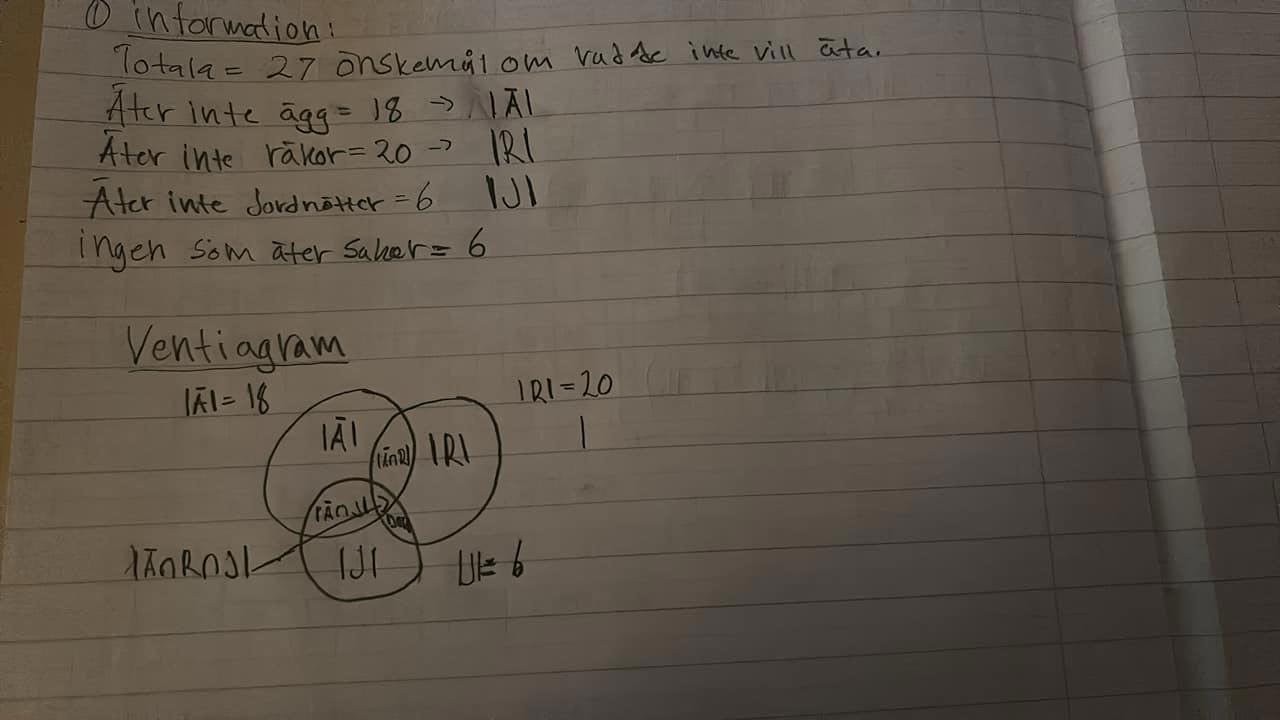 ① information:
Totala = 27 önskemål om vad de inte vill äta.
Äter inte ägg = 18 → |Ä|
Äter inte räkor = 20 → |R|
Äter inte Jordnötter = 6 |J|
ingen som äter saker = 6
Ventiagram
|Ä| = 18
|R| = 20
|Ä|
|Ä∩R|
|R|
|Ä∩J|
|Ä∩R∩J|
|J|
|J| = 6